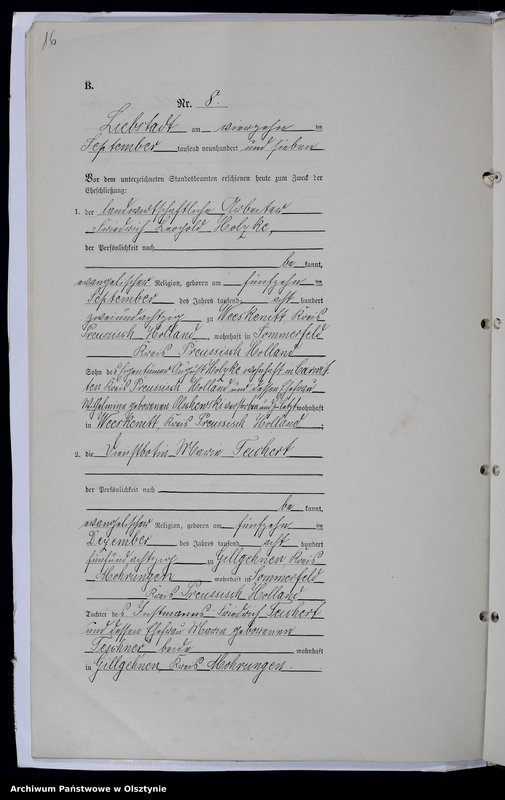 16
B.
Nr. 8.
Liebstadt am vierzehn ten
September tausend neunhundert und sieben
Vor dem unterzeichneten Standesbeamten erschienen heute zum Zweck der
Eheschließung:
1. der landwirtschaftliche Arbeiter
Friedrich Leopold Holzke,
der Persönlichkeit nach
be kannt,
evangelischer Religion, geboren am fünfzehn ten
September des Jahres tausend acht hundert
zweiundachtzig zu Weeskenitt Kreis
Preussisch Holland, wohnhaft in Sommerfeld
Kreis Preussisch Holland
Sohn des Eigentümers August Holzke wohnhaft in
ten Kreis Preussisch Holland und dessen Ehefrau
Wilhelmine geborenen verstorben und zuletzt wohnhaft
in Weeskenitt, Kreis Preussisch Holland;
2. die Dienstbotin Maria Teichert
der Persönlichkeit nach
be kannt,
evangelischer Religion, geboren am fünfzehn ten
Dezember des Jahres tausend acht hundert
fünfundachtzig zu Gillgehnen Kreis
Mohrungen wohnhaft in Sommerfeld
Kreis Preussisch Holland
Tochter des Instmanns Friedrich Teichert
und dessen Ehefrau Maria geborenen
beide wohnhaft
in Gillgehnen Kreis Mohrungen.
Archiwum Państwowe w Olsztynie